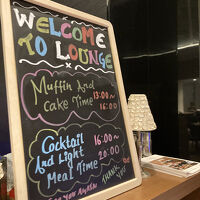 WELCOME
TO LOUNGE
Muffin And 13:00~
cake Time 16:00
Cocktail 16:00~
And Light 20:00
Meal Time
THANK
YOU